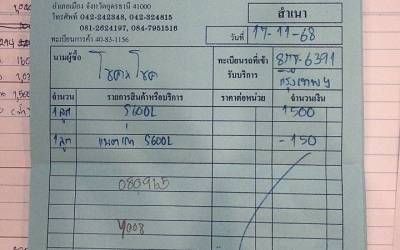 อำเภอเมือง จังหวัดอุดรธานี 41000
โทรศัพท์ 042-242348, 042-324815
081-2624197, 084-7951516
ทะเบียนการค้า 40-83-1156
สำเนา
วันที่ 17-11-68
นามผู้ซื้อ โชคาโชค
ทะเบียนรถที่เข้ารับบริการ 877-6391
กรุงเทพฯ
จำนวน รายการสินค้าหรือบริการ ราคาต่อหน่วย จำนวนเงิน
1 ลูก S100L 1500
1 ลูก แบตเก่า S100L -150